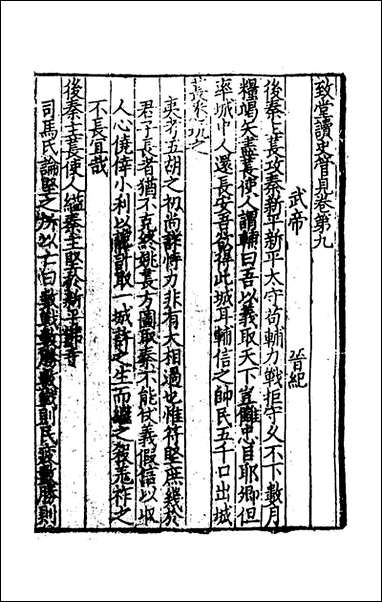 致堂讀史管見卷第九
武帝　晉紀
後秦主萇攻秦新平新平太守苟輔力戰拒守久不下數月
糧竭矢盡萇使人謂輔曰吾以義取天下豈讎忠臣耶卿但
率城中人還長安吾欲得此城耳輔信之帥民五千口出城
萇盡坑之
夷考五胡之初尚詐恃力非有大相過也惟符堅庶幾於
君子長者猶不克終姚萇方圖取秦不能杖義假信以收
人心僥倖小利以譎計取一城許之生而殲之後嵬祚之
不長宜哉
後秦主萇使人縊秦主堅於新平佛寺
司馬氏論堅之所以亡曰數戰數勝數戰則民疲數勝則